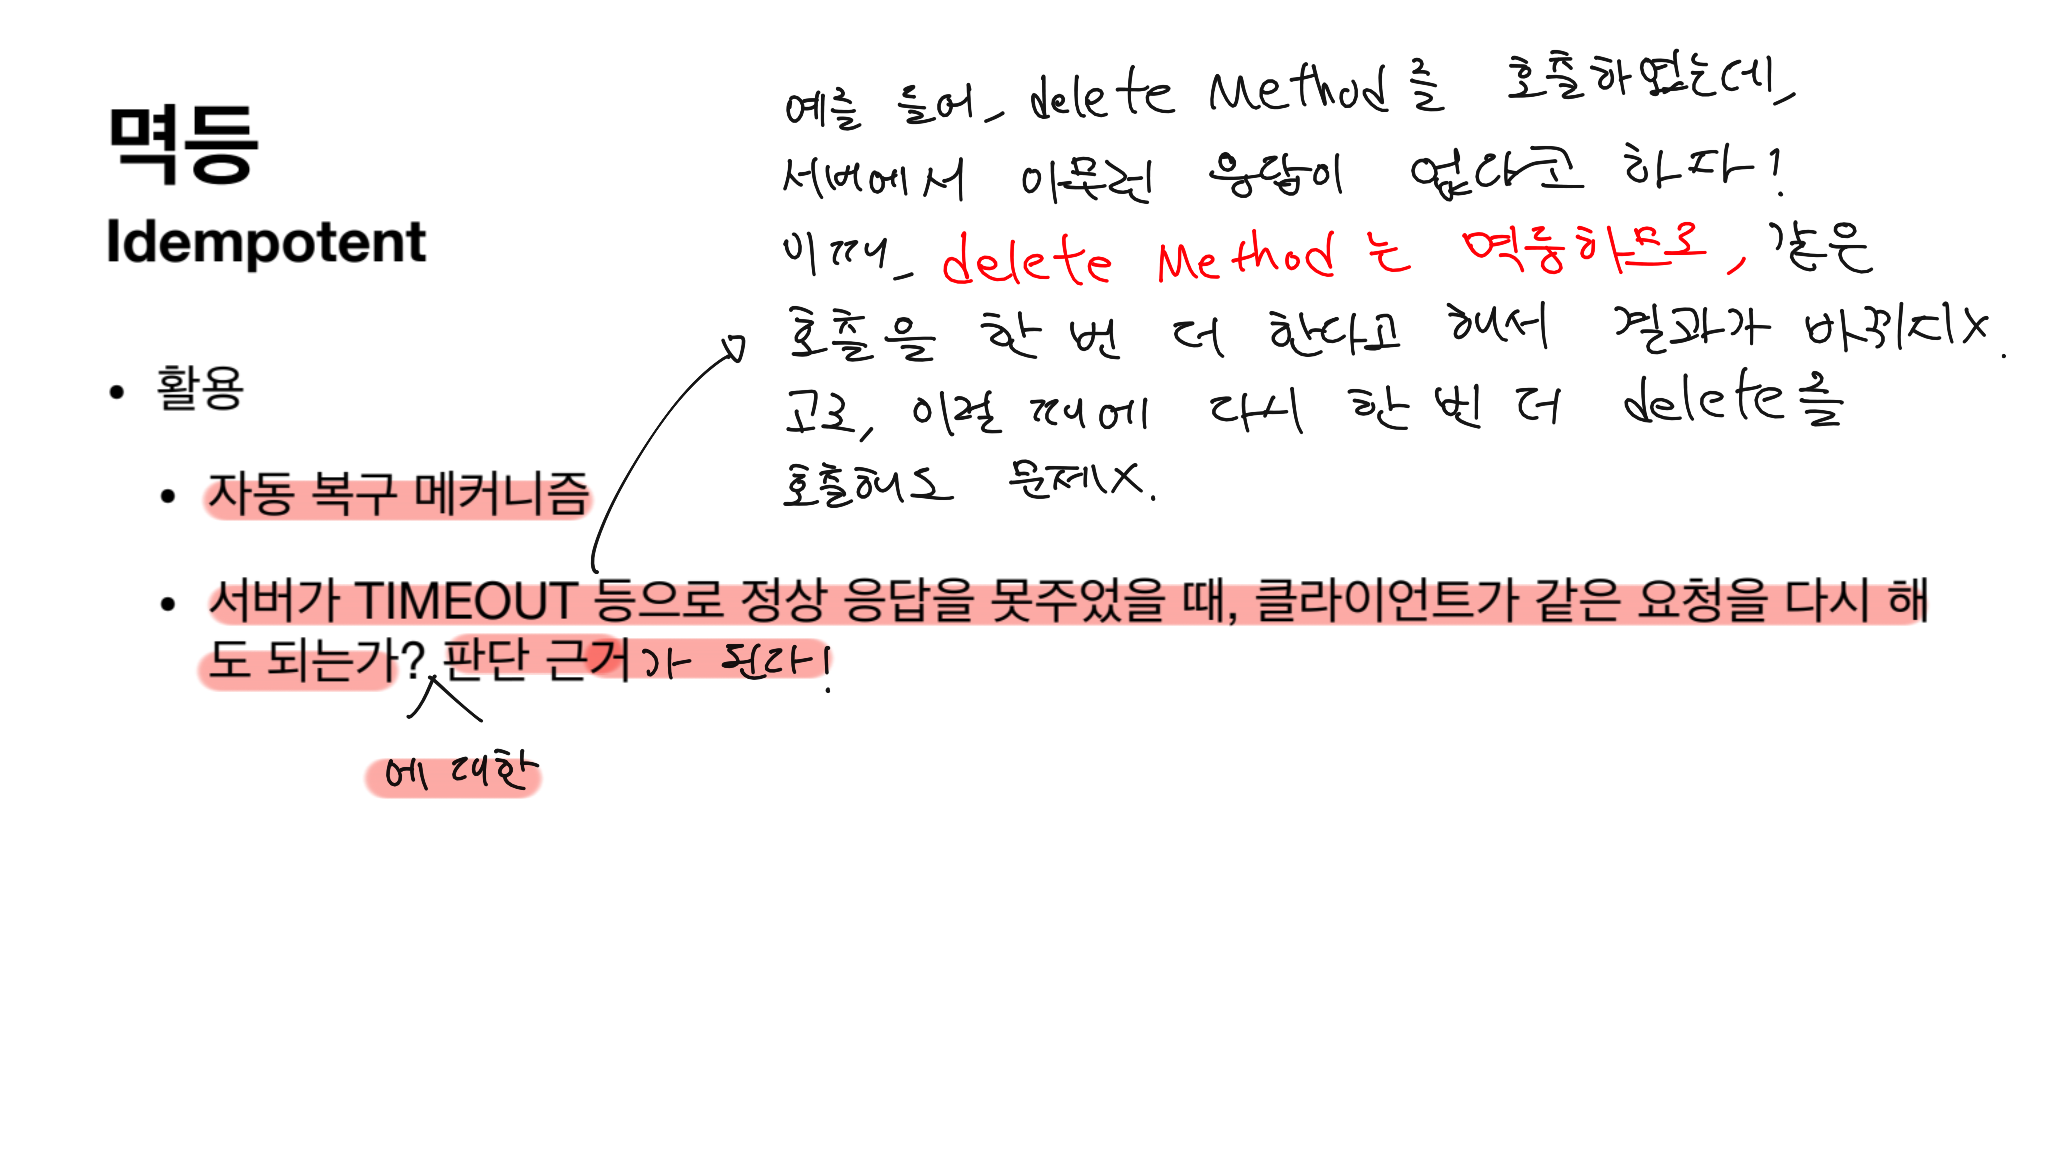 멱등
Idempotent
• 활용
• 자동 복구 메커니즘
• 서버가 TIMEOUT 등으로 정상 응답을 못주었을 때, 클라이언트가 같은 요청을 다시 해
도 되는가? 판단 근거가 된다!
에 대한
예를 들어, delete Method를 호출하였는데,
서버에서 아무런 응답이 없다고 하자!
이 때, delete Method는 멱등하므로, 같은
호출을 한 번 더 한다고 해서 결과가 바뀌지X.
고로, 이럴 때에 다시 한 번 더 delete를
호출해도 문제X.